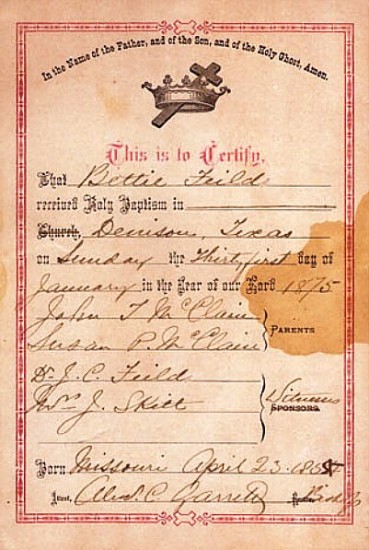 In the Name of the Father, and of the Son, and of the Holy Ghost, Amen.
This is to Certify,
That Bettie Feild
received Holy Baptism in
Church, Denison, Texas
on Sunday the Thirty first day of
January in the Year of our Lord 1875
John T McClain
Susan P. McClain
PARENTS
Dr J. C. Feild
J. Skitt
Witnesses
SPONSORS
Born Missouri April 23. 185
Alex. C. Garrett